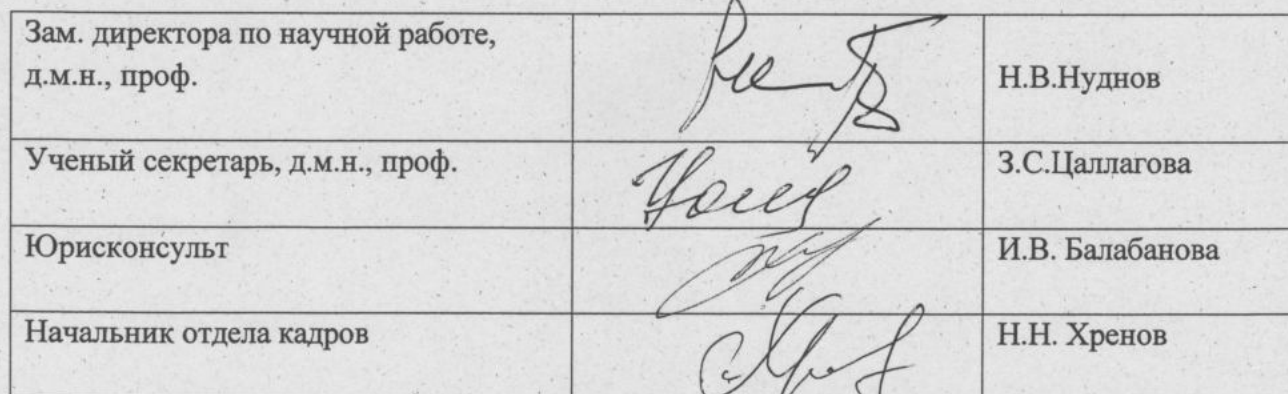 Зам. директора по научной работе,
д.м.н., проф.
Н.В.Нуднов
Ученый секретарь, д.м.н., проф.
З.С.Цаллагова
Юрисконсульт
И.В. Балабанова
Начальник отдела кадров
Н.Н. Хренов